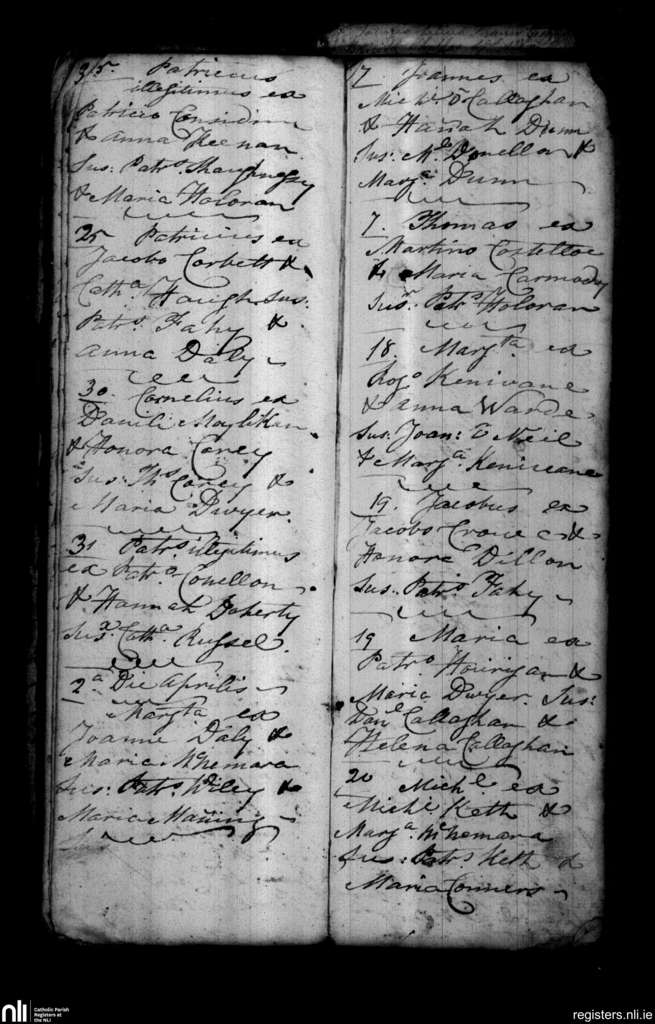 Patricius
illegitimus ex
Patricio Considin
& Anna Keenan
Sus: Patrs.
& Maria Holoran
25 Patricius ex
Jacobo Corbett &
Catha Haugh. Sus:
Patrs. Fahy &
Anna Daly
30 Cornelius ex
Danili
& Honora Corey
Sus: Ths Corey &
Maria Dwyer.
31 Patrs illegitimus
ex Patro Conellon
& Hannah Doherty
Susx Catha Russel.
2a Die Aprilis
Margta ex
Joanne Daly &
Maria McNemara
Sus: Patrs Wiley &
Maria Maning
17 Joannes ex
Michl O Callaghan
& Hanah Dunn
Sus: Ml Donellon &
Marga Dunn
7. Thomas ex
Martino Costelloe
& Maria Carmody
Susr Patrs Holoran
18. Margta ex
Rogo Kenivane
& Anna Warde
Sus: Joan: O Neil
& Marga Keniveane
19. Jacobus ex
Jacobo Crowe &
Honora Dillon
Sus: Patrs Fahy
19 Maria ex
Patro Hourigan &
Maria Dwyer. Sus:
Danl Callaghan &
Helena Callaghan
20 Michl ex
Michl Keth &
Marga McNemara
Sus: Patrs Keth &
Maria Conners
nli
Catholic Parish
Registers at
the NLI
registers.nli.ie